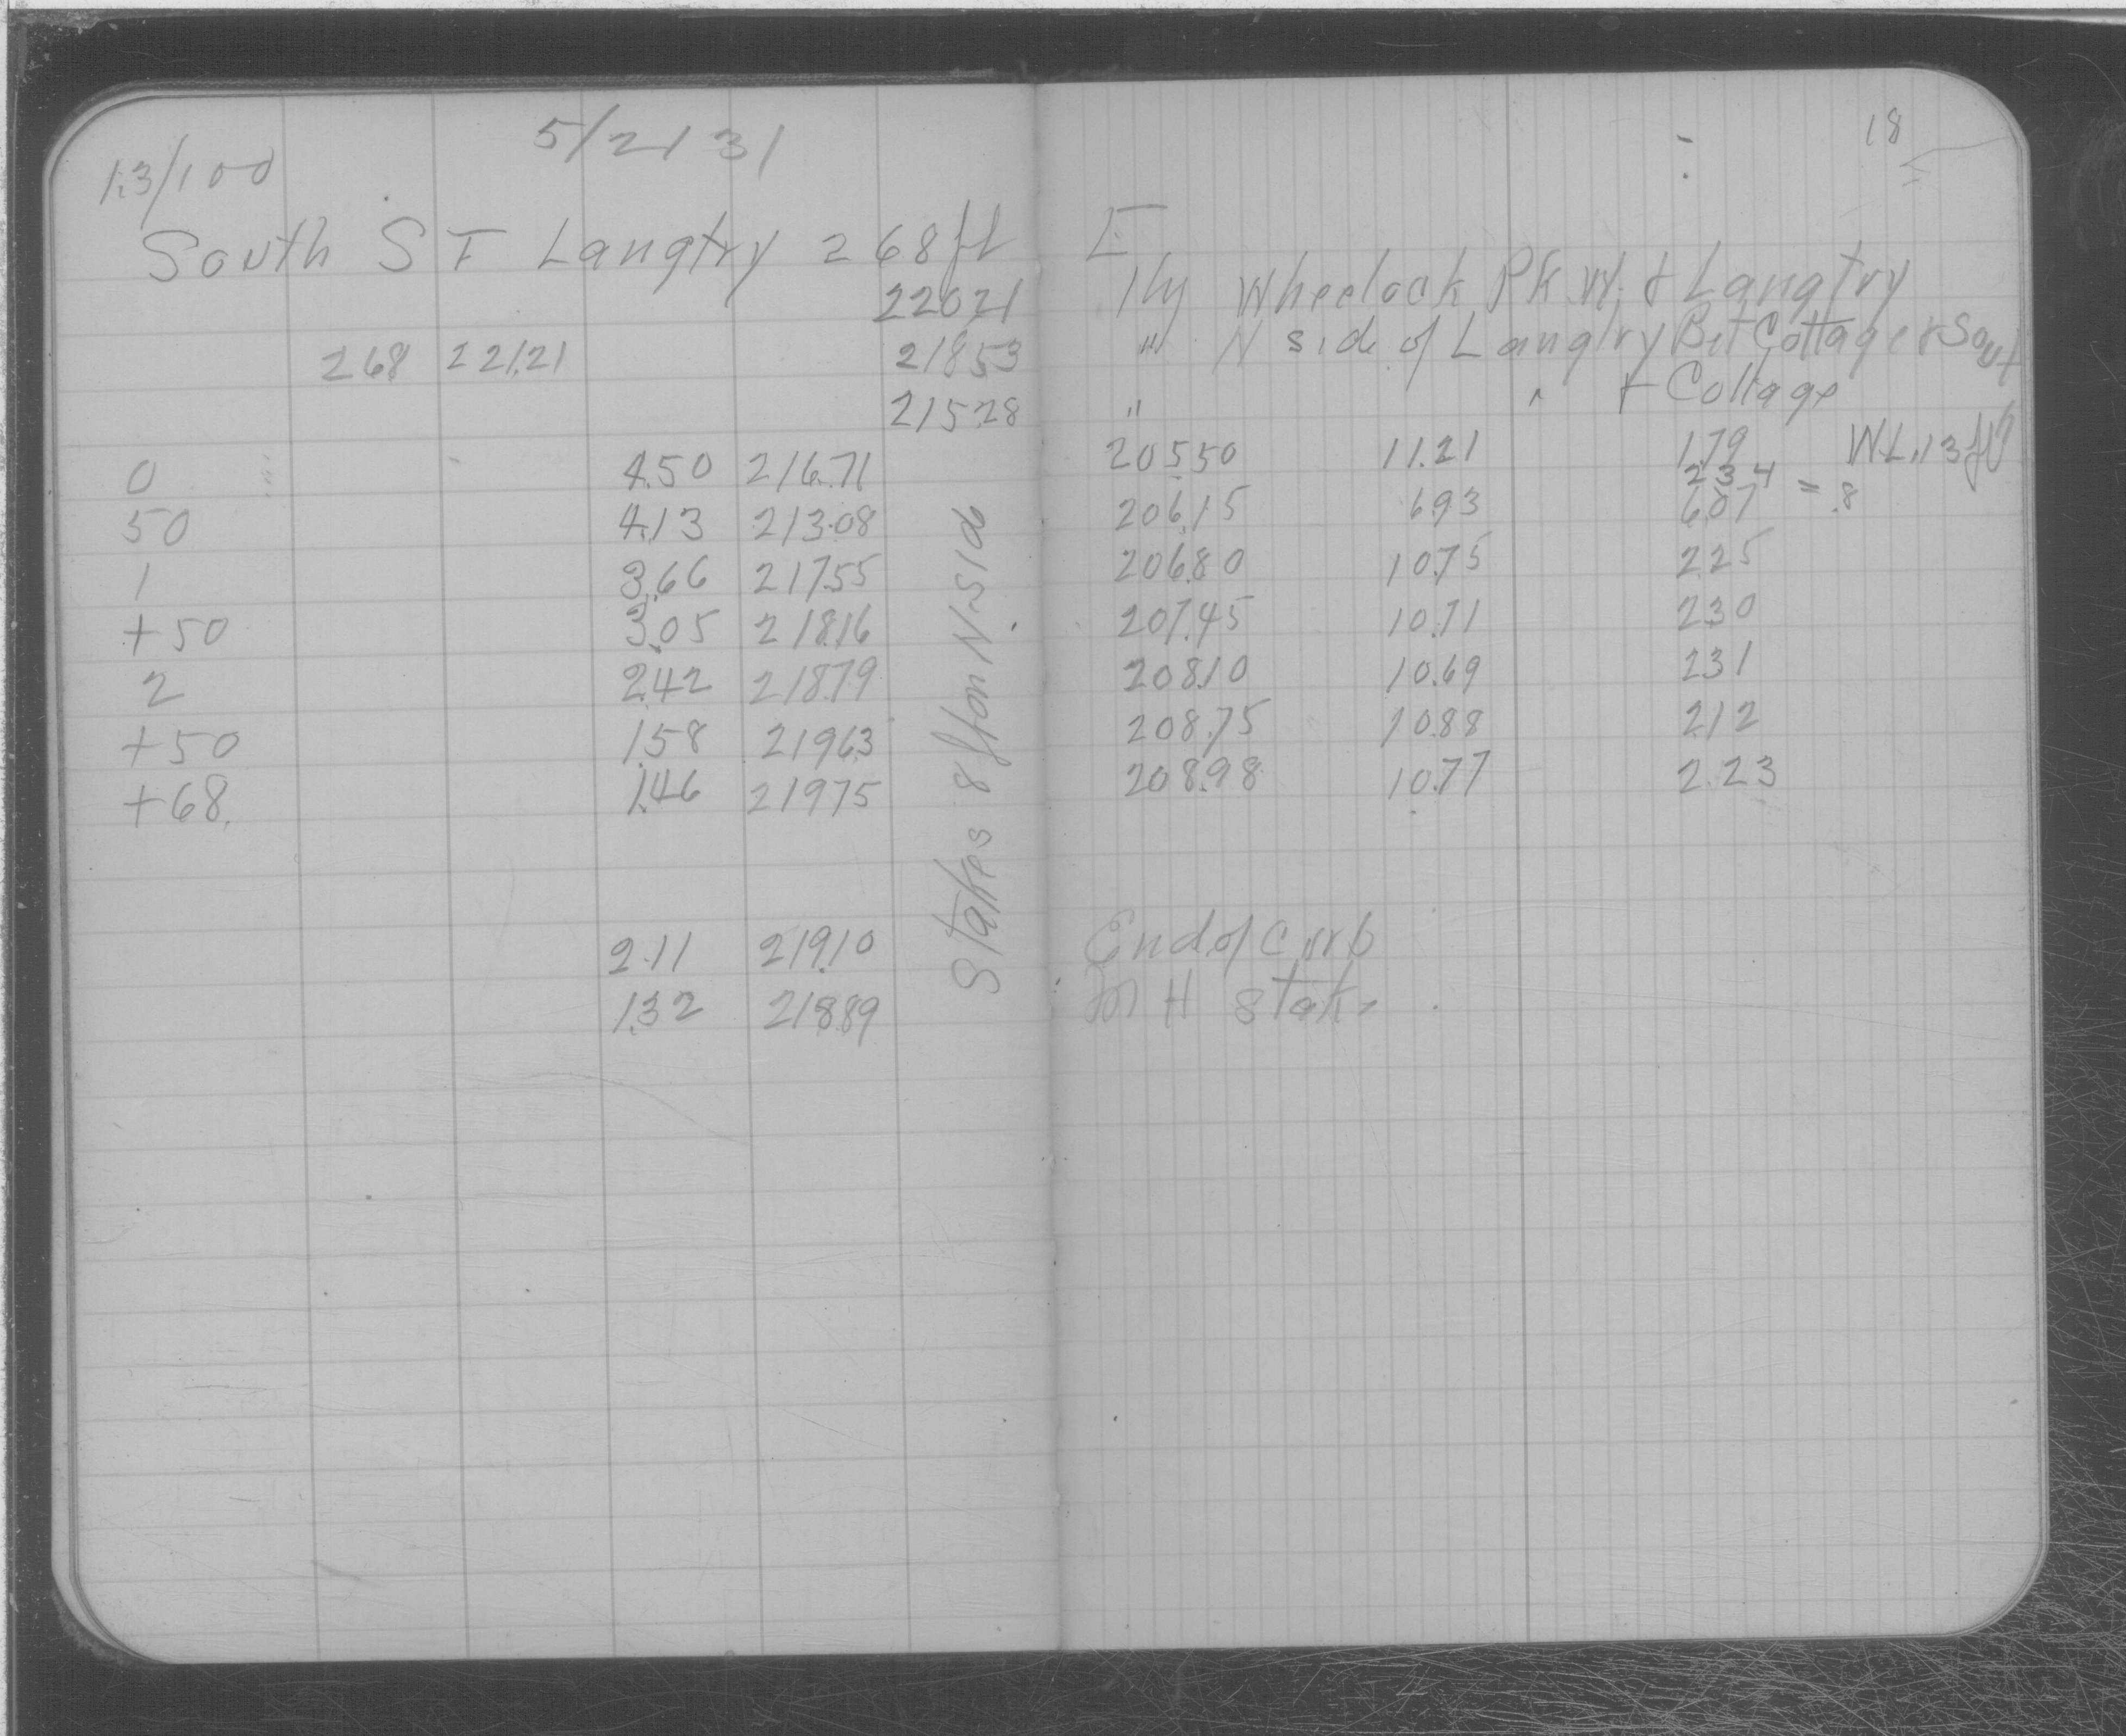 5/21 31
18
1.3/100
South St Langtry 268 ft E
220.21 Hy Wheelock Pk W. & Langtry
2.68 221.21 218.53 " N side of Langtry Bet Cottage & Sout
215.28 " " & Cottage
0 4.50 216.71 205.50 11.21 1.79 WL. 13 ft
234
50 4.13 213.08 206.15 6.93 6.07 = .8
1 3.66 217.55 206.80 10.75 2.25
+50 3.05 218.16 207.45 10.71 2.30
2 2.42 218.79 208.10 10.69 2.31
+50 1.58 219.63 208.75 10.88 2.12
+68. 1.46 219.75 208.98 10.77 2.23
Stakes 8 ft on N. Side
2.11 219.10 End of Curb
1.32 218.89 M H Stake